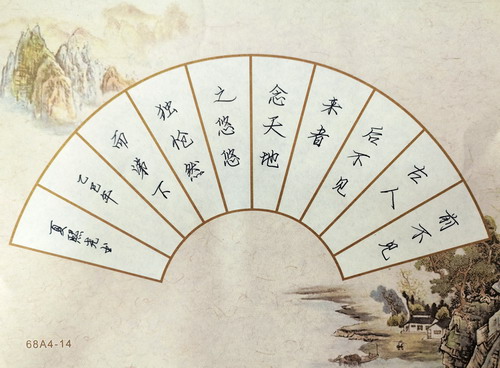 前不见
古人
后不见
来者
念天地
之悠悠
独怆然
而涕下
乙巳年
夏熙书
68A4-14